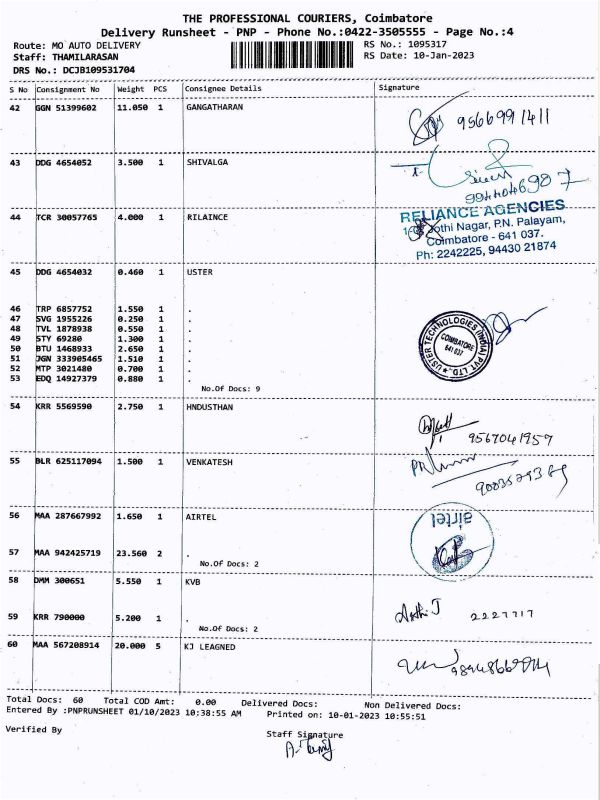 THE PROFESSIONAL COURIERS, Coimbatore
Delivery Runsheet - PNP - Phone No.:0422-3505555 - Page No.:4
Route: MO AUTO DELIVERY
RS No.: 1095317
Staff: THAMILARASAN
RS Date: 10-Jan-2023
DRS No.: DCJB109531704
S No Consignment No Weight PCS Consignee Details Signature
42 GGN 51399602 11.050 1 GANGATHARAN
9566991411
43 DDG 4654052 3.500 1 SHIVALGA
9944046987
44 TCR 30057765 4.000 1 RILAINCE
RELIANCE AGENCIES
Jothi Nagar, P.N. Palayam,
Coimbatore - 641 037.
Ph: 2242225, 94430 21874
45 DDG 4654032 0.460 1 USTER
46 TRP 6857752 1.550 1 .
47 SVG 1955226 0.250 1 .
48 TVL 1878938 0.550 1 .
49 STY 69280 1.300 1 .
50 BTU 1468933 2.650 1 .
51 JGN 333905465 1.510 1 .
52 MTP 3021480 0.700 1 .
53 EDQ 14927379 0.880 1 .
No.Of Docs: 9
USTER TECHNOLOGIES (INDIA) PVT. LTD.
COIMBATORE
641 037
54 KRR 5569590 2.750 1 HNDUSTHAN
9567041957
55 BLR 625117094 1.500 1 VENKATESH
56 MAA 287667992 1.650 1 AIRTEL
airtel
57 MAA 942425719 23.560 2 .
No.Of Docs: 2
58 DMM 300651 5.550 1 KVB
59 KRR 790000 5.200 1 .
2227717
No.Of Docs: 2
60 MAA 567208914 20.000 5 KJ LEAGNED
Total Docs: 60 Total COD Amt: 0.00 Delivered Docs: Non Delivered Docs:
Entered By :PNPRUNSHEET 01/10/2023 10:38:55 AM Printed on: 10-01-2023 10:55:51
Verified By
Staff Signature